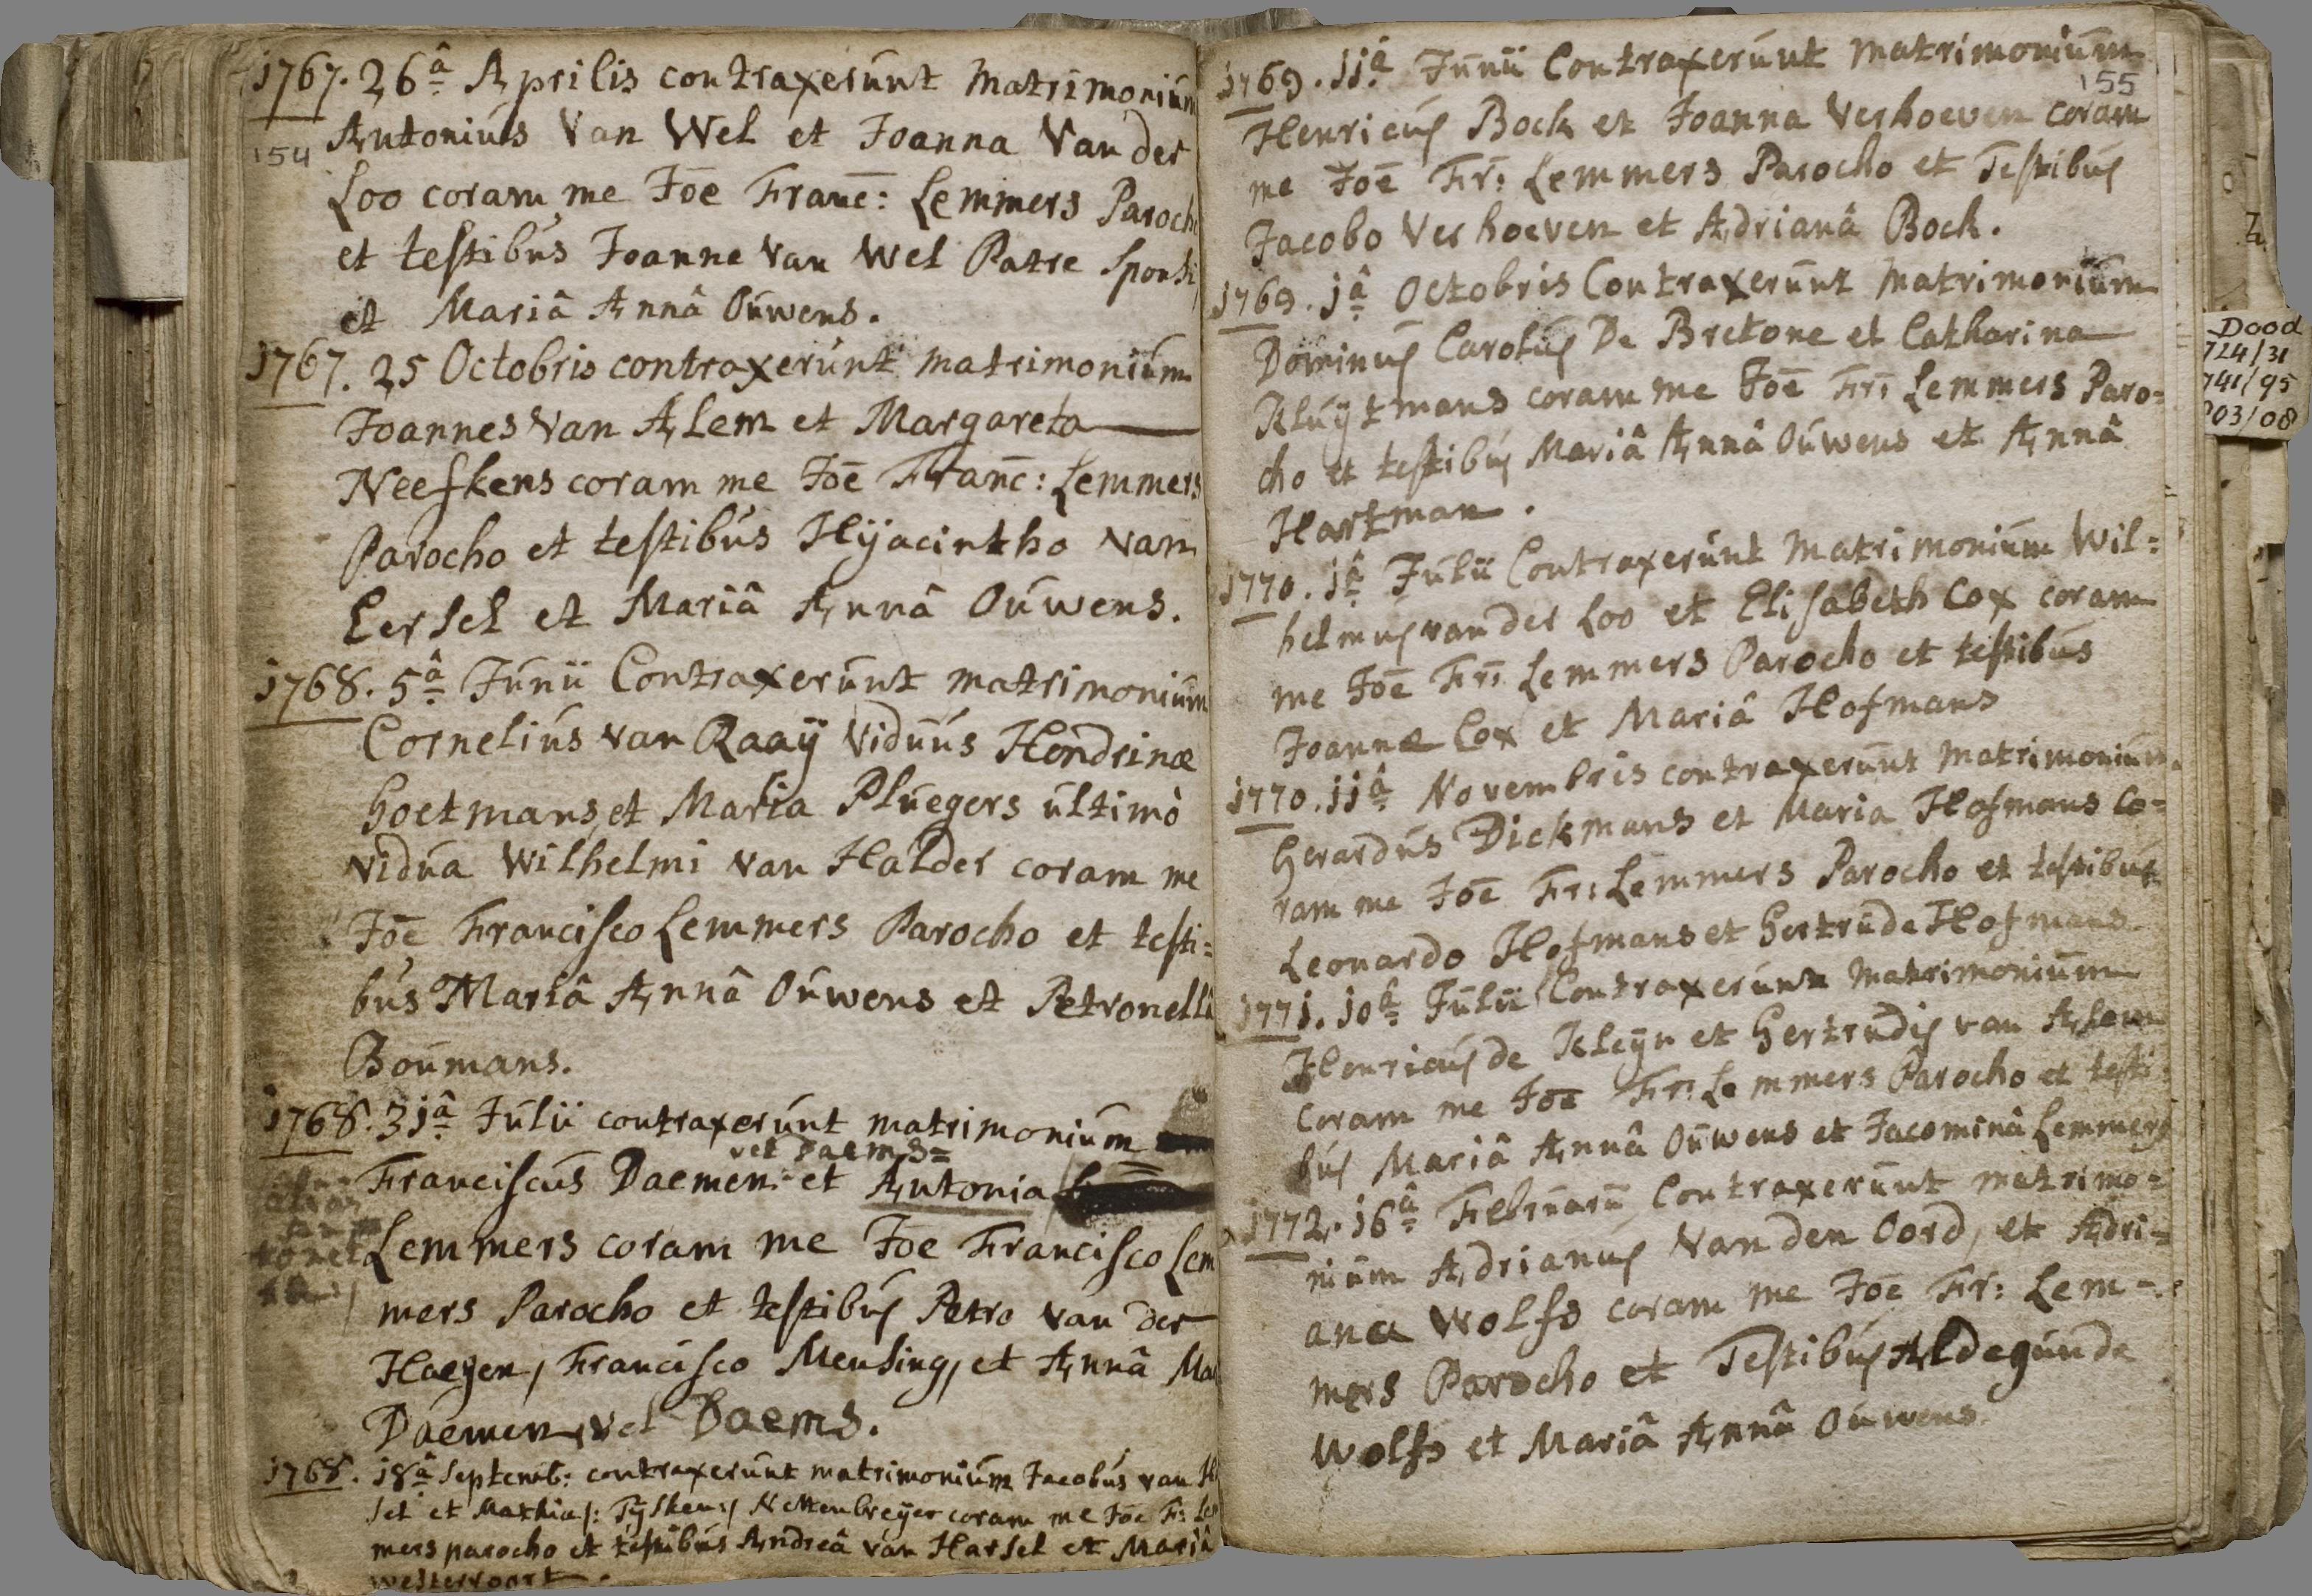 1767. 26â Aprilis contraxerunt matrimonium
154
Antonius Van Wel et Joanna Van der
Loo coram me Jōe Franc̄: Lemmers Parocho
et testibus Joanne Van Wel Patre Sponsi
et Mariâ Annâ Ouwens.
1767. 25 Octobris contraxerunt matrimonium
Joannes Van Alem et Margareta
Neefkens coram me Jōe Franc̄: Lemmers
Parocho et testibus Hÿacintho van
Eersel et Mariâ Annâ Ouwens.
1768. 5â Junii Contraxerunt matrimonium
Cornelius van Raaÿ Viduus Hendrinæ
Goetmans, et Maria Pluegers ultimò
vidua Wilhelmi van Halder coram me
Jōe Francisco Lemmers Parocho et testi=
bus Mariâ Annâ Ouwens et Petronellâ
Boumans.
1768. 31â Julii contraxerunt matrimonium
vel Daems=
Franciscus Daemen et Antonia
Lemmers coram me Jōe Francisco Lem
mers Parocho et testibus Petro van der
Haegen, Francisco Mensing, et Annâ Ma
Daemen, vel Daems.
1768. 18â Septemb: contraxerunt matrimonium Jacobus van H
sel et Mathia: Tÿsken: coram me Jōe Fr: Lem
mers parocho et testibus Andreâ van Harsel et Mariâ
Westervoort.
1769. 11â Junii Contraxerunt matrimonium
155
Henricus Bock et Joanna Verhoeven coram
me Jōe Fr: Lemmers Parocho et Testibus
Jacobo Verhoeven et Adrianâ Bock.
1769. 1â Octobris Contraxerunt matrimonium
Dominus Carolus De Bretone et Catharina
Kluÿtmans coram me Jōe Fr: Lemmers Paro=
cho et testibus Mariâ Annâ Ouwens et Annâ
Hartman.
1770. 1â Julii Contraxerunt matrimonium Wil=
helmus van der Loo et Elisabeth Cox coram
me Jōe Fr: Lemmers Parocho et testibus
Joanne Cox et Mariâ Hofmans
1770. 11â Novembris contraxerunt matrimonium
Gerardus Dickmans et Maria Hofmans co=
ram me Jōe Fr: Lemmers Parocho et testibus
Leonardo Hofmans et Gertrude Hofmans
1771. 10â Julii Contraxerunt matrimonium
Henricus de Kleÿn et Gertrudis van Alem
coram me Jōe Fr: Lemmers Parocho et testi
bus Mariâ Annâ Ouwens et Jacominâ Lemmers
1772. 16â Februarii Contraxerunt matrimo=
nium Adrianus Van den Oord, et Adri=
ana Wolfs coram me Jōe Fr: Lem=
mers Parocho et Testibus Aldegunde
Wolfs et Mariâ Annâ Ouwens
Dood
724/31
741/95
803/08